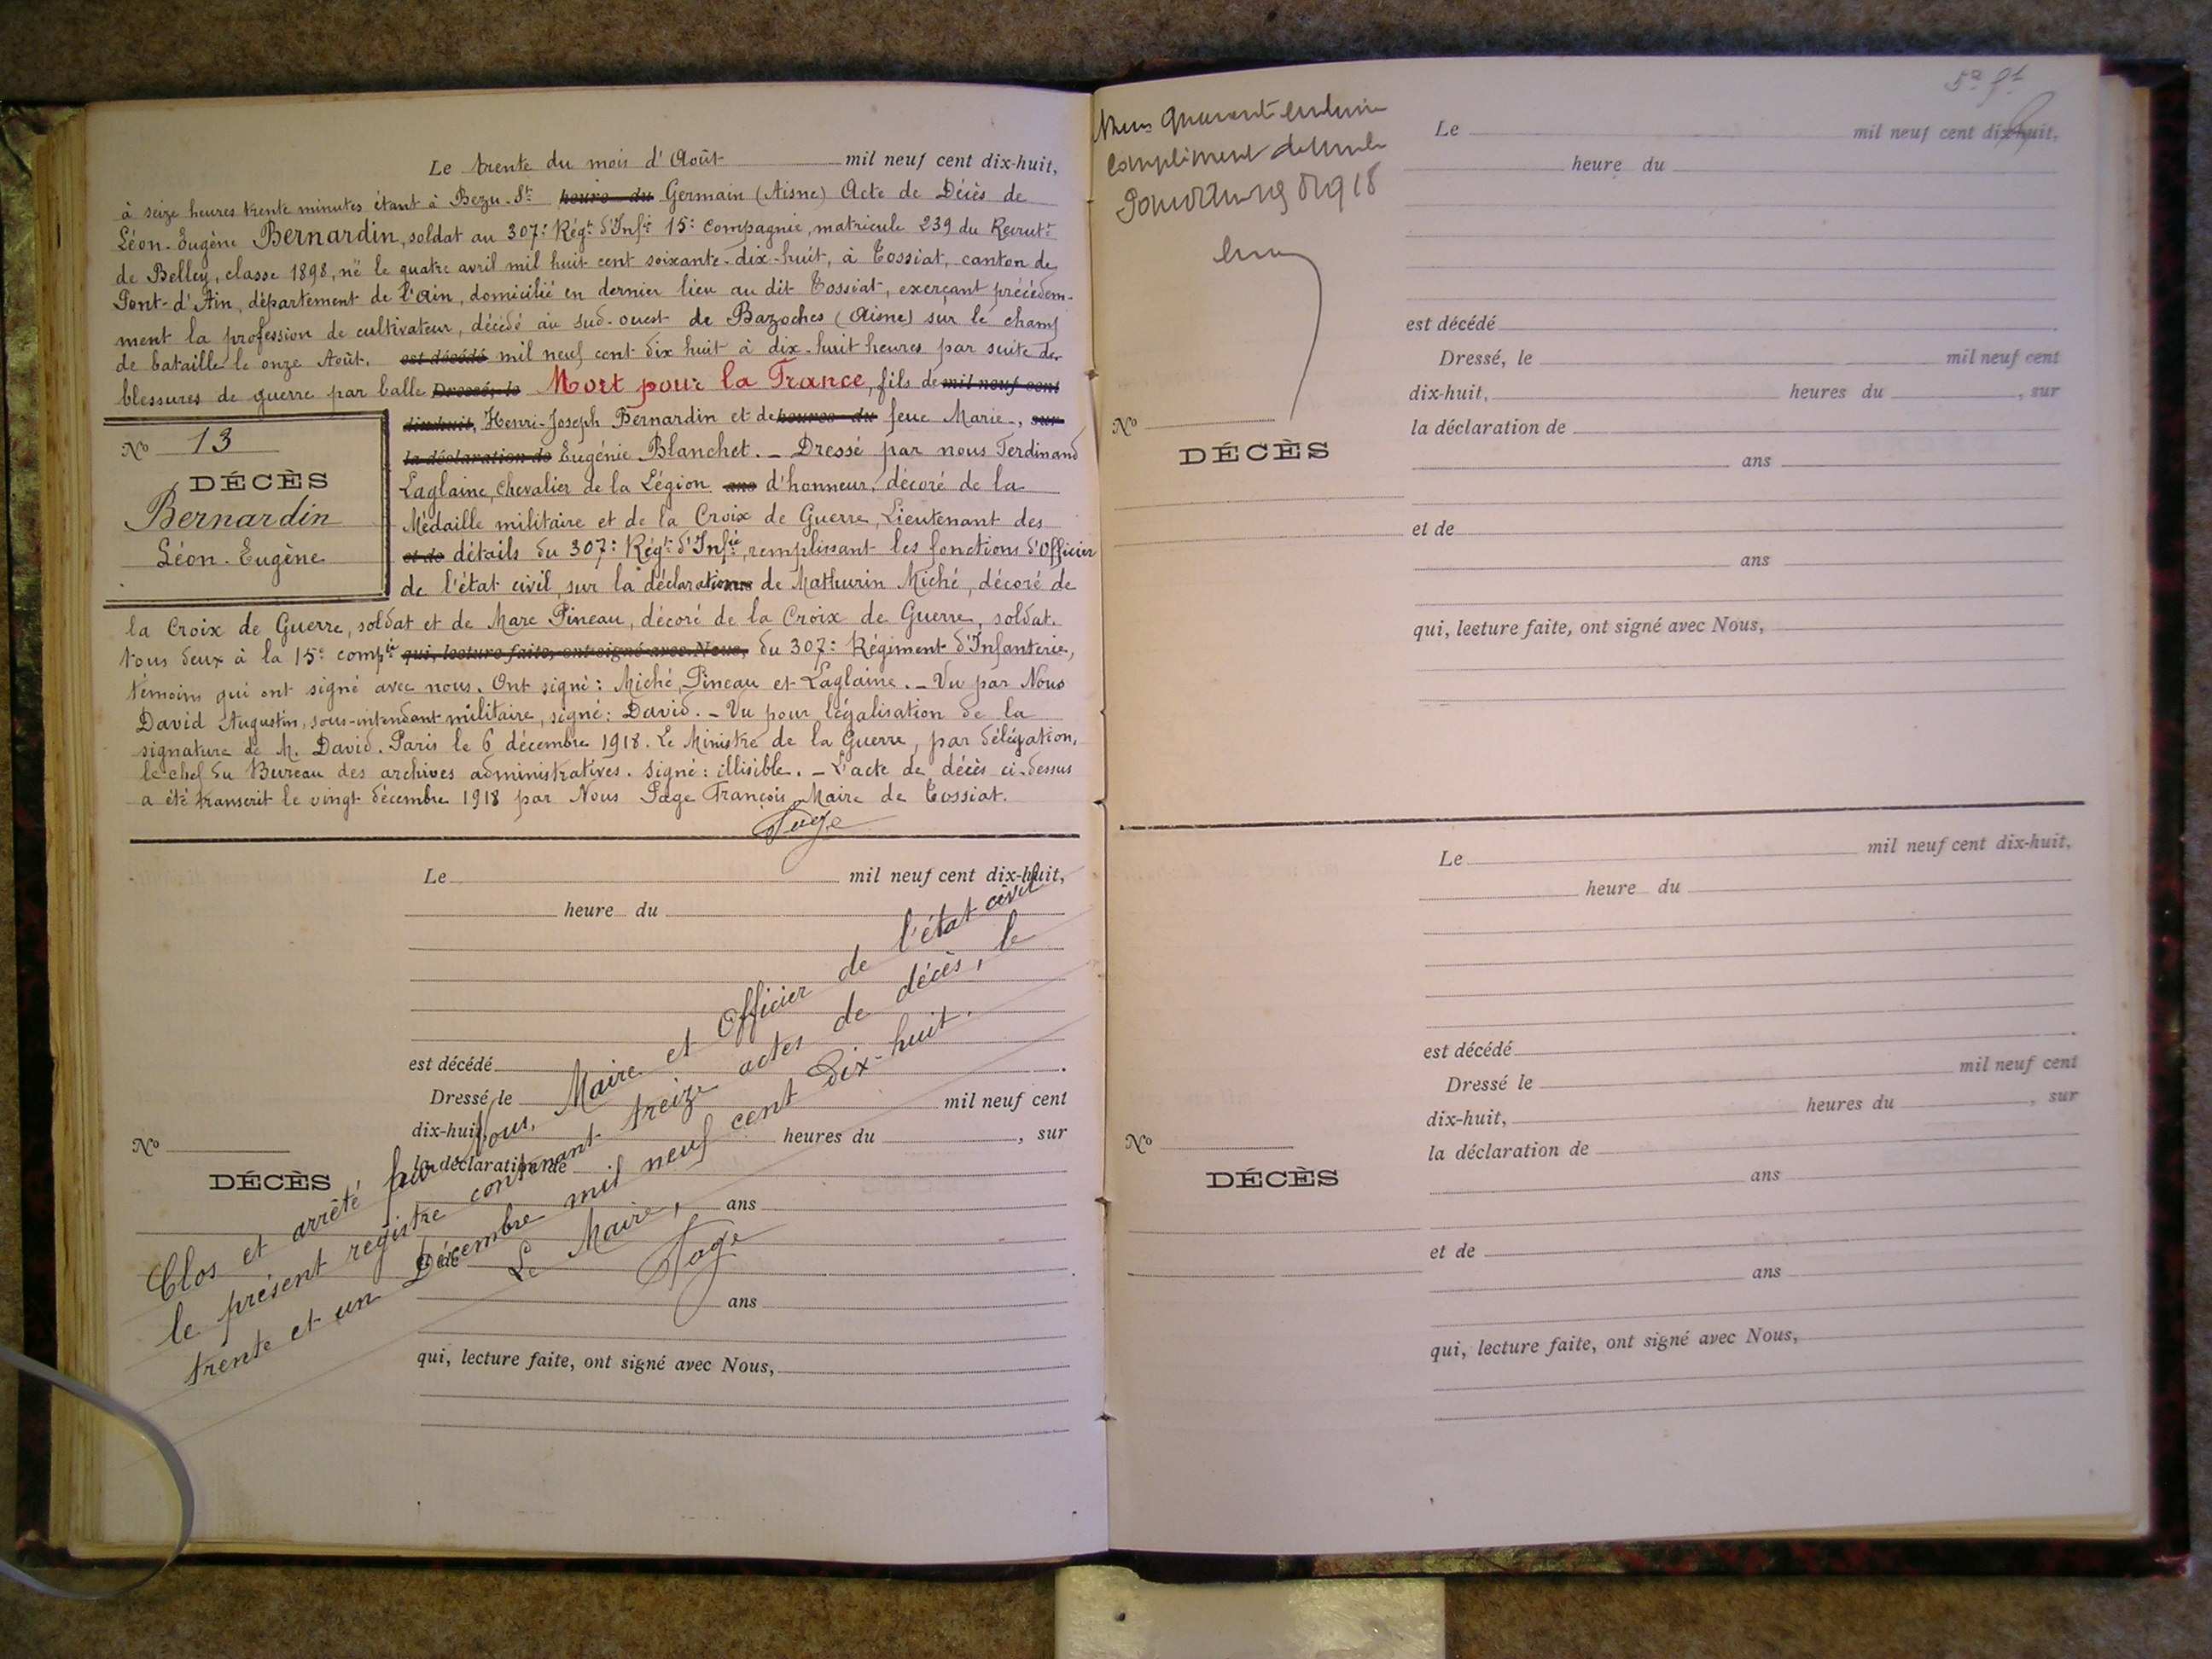 Le trente du mois d'Août mil neuf cent dix-huit,
à seize heures trente minutes étant à Bezu-St heure du Germain (Aisne) Acte de Décès de
Léon-Eugène Bernardin, soldat au 307e Régt d'Infie 15e Compagnie, matricule 239 du Recrutt
de Belley, classe 1898, né le quatre avril mil huit cent soixante-dix-huit, à Tossiat, canton de
Pont-d'Ain, département de l'Ain, domicilié en dernier lieu au dit Tossiat, exerçant précédem-
ment la profession de cultivateur, décédé au sud-ouest de Bazoches (Aisne) sur le champ
de bataille le onze Août, est décédé mil neuf cent dix huit à dix-huit heures par suite de
blessures de guerre par balle Dressé, le Mort pour la France, fils de mil neuf cent
dix-huit, Henri-Joseph Bernardin et de heures du feue Marie-, sur
la déclaration de Eugénie Blanchet. _ Dressé par nous Ferdinand
Laglaine, Chevalier de la Légion ans d'honneur, décoré de la
Médaille militaire et de la Croix de Guerre, Lieutenant des
et de détails du 307e Régt d'Infie, remplissant les fonctions d'Officier
de l'état civil, sur la déclaration ans de Mathurin Miché, décoré de
No 13
DÉCÈS
Bernardin
Léon-Eugène
la Croix de Guerre, soldat et de Marc Pineau, décoré de la Croix de Guerre, soldat.
tous deux à la 15e compie qui, lecture faite, ont signé avec Nous, du 307e Régiment d'Infanterie,
témoins qui ont signé avec nous. Ont signé : Miché, Pineau et Laglaine. _ Vu par Nous
David Augustin, sous-intendant militaire, signé : David. _ Vu pour légalisation de la
signature de M. David. Paris le 6 décembre 1918. Le Ministre de la Guerre, par délégation,
le chef du Bureau des archives administratives. Signé : illisible. _ L'acte de décès ci-dessus
a été transcrit le vingt décembre 1918 par Nous Page François, Maire de Tossiat.
Page
Le mil neuf cent dix-huit,
heure du
est décédé
Dressé le mil neuf cent
dix-huit, heures du , sur
la déclaration de
ans
et de
ans
qui, lecture faite, ont signé avec Nous,
No
DÉCÈS
Clos et arrêté par Nous, Maire et Officier de l'état civil
le présent registre contenant treize actes de décès, le
trente et un Décembre mil neuf cent dix-huit.
Le Maire,
Page
No
DÉCÈS
Le mil neuf cent dix-huit,
heure du
est décédé
Dressé, le mil neuf cent
dix-huit, heures du , sur
la déclaration de
ans
et de
ans
qui, lecture faite, ont signé avec Nous,
No
DÉCÈS
Le mil neuf cent dix-huit,
heure du
est décédé
Dressé le mil neuf cent
dix-huit, heures du , sur
la déclaration de
ans
et de
ans
qui, lecture faite, ont signé avec Nous,